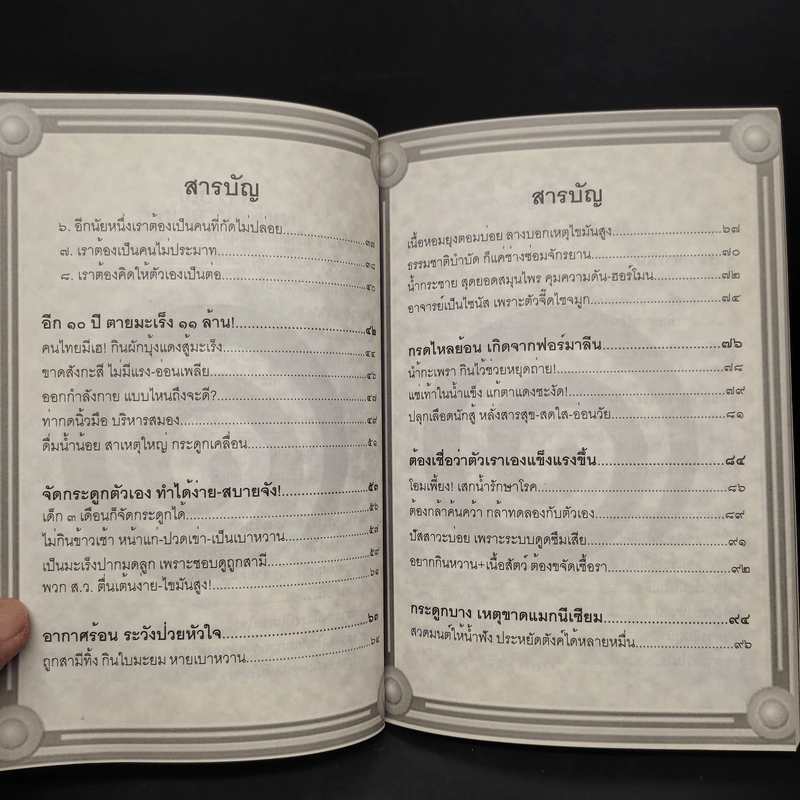 สารบัญ
๖. อีกนัยหนึ่งเราต้องเป็นคนที่กัดไม่ปล่อย....................๓๗
๗. เราต้องเป็นคนไม่ประมาท....................๓๘
๘. เราต้องคิดให้ตัวเองเป็นตอ....................๔๐
อีก ๑๐ ปี ตายมะเร็ง ๑๑ ล้าน!....................๔๒
คนไทยมีเฮ! กินผักบุ้งแดงสู้มะเร็ง....................๔๔
ขาดสังกะสี ไม่มีแรง-อ่อนเพลีย....................๔๖
ออกกำลังกาย แบบไหนถึงจะดี?....................๔๗
ท่ากดนิ้วมือ บริหารสมอง....................๔๙
ดื่มน้ำน้อย สาเหตุใหญ่ กระดูกเคลื่อน....................๕๑
จัดกระดูกตัวเอง ทำได้ง่าย-สบายจัง!....................๕๓
เด็ก ๓ เดือนก็จัดกระดูกได้....................๕๖
ไม่กินข้าวเช้า หน้าแก่-ปวดเข่า-เป็นเบาหวาน....................๕๗
เป็นมะเร็งปากมดลูก เพราะชอบดูถูกสามี....................๕๙
พวก ส.ว. ตื่นเต้นงาย-ไขมันสูง!....................๖๑
อากาศร้อน ระวังป่วยหัวใจ....................๖๓
ถูกสามีทิ้ง กินใบมะยม หายเบาหวาน....................๖๔
สารบัญ
เนื้อหอมยุงตอมบ่อย ลางบอกเหตุไขมันสูง....................๖๗
ธรรมชาติบำบัด ก็แค่ช่างซ่อมจักรยาน....................๗๐
น้ำกระชาย สุดยอดสมุนไพร คุมความดัน-ฮอร์โมน....................๗๒
อาจารย์เป็นไซนัส เพราะตัวจี๊ดไชจมูก....................๗๔
กรดไหลย้อน เกิดจากฟอร์มาลีน....................๗๖
น้ำกะเพรา กินไว้ช่วยหยุดถ่าย!....................๗๘
แช่เท้าในน้ำแข็ง แก้ตาแดงชะงัด!....................๗๙
ปลุกเลือดนักสู้ หลั่งสารสุข-สดใส-อ่อนวัย....................๘๑
ต้องเชื่อว่าตัวเราเองแข็งแรงขึ้น....................๘๔
โอมเพี้ยง! เสกน้ำรักษาโรค....................๘๖
ต้องกล้าค้นคว้า กล้าทดลองกับตัวเอง....................๘๙
ปัสสาวะบ่อย เพราะระบบดูดซึมเสีย....................๙๑
อยากกินหวาน+เนื้อสัตว์ ต้องขจัดเชื้อรา....................๙๒
กระดูกบาง เหตุขาดแมกนีเซียม....................๙๔
สวดมนต์ให้น้ำฟัง ประหยัดตังค์ได้หลายหมื่น....................๙๖